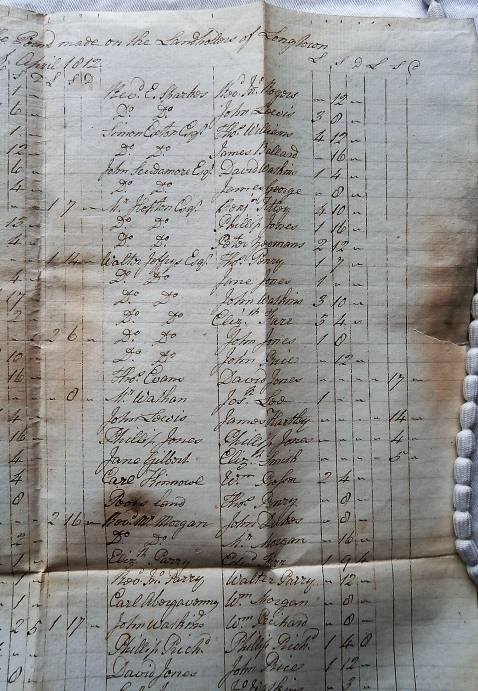 Pound made on the Landholders of Longtown
April 1812
L S D L S D
1 Revd. E. Barkes Revd. Jn. Rogers - 12 -
6 - Do. Do. John Lewis 3 8 -
1 - Simon Exton Esqr. Thos. Williams 4 12 -
12 - Do. Do. James Ballard - 16 -
6 - John Scudamore Esqr. David Watkins 1 4 -
4 - Do. Do. James George - 8 -
1 7 - Esqr. 4 10 -
13 - Do. Do. Phillip Jones 1 16 -
4 - Do. Do. Peter 2 12 -
1 14 - Walter Esqr. Thos. Parry 1 7 -
4 - Do. Do. Jane Jones 1 - -
17 Do. Do. John Watkins 3 10 -
2 Do. Do. Elizth. Hare 3 4 -
2 6 - Do. Do. John Jones 1 8
10 Do. Do. John Price - 12 -
16 Thos. Evans David Jones - - - - 17 -
- 8 - Mr. Wathan Jos. 1 - -
4 John Lewis James Hartby - - - - 14 -
16 Phillip Jones Phillip Jones - - - - 4 -
4 Jane Gilbert Elizth. Smith - - - - 5 -
4 Carl Wm. 2 4 -
8 Poors land Thos. Parry - 8 -
2 16 - Revd. Mr. Morgan John - 8 -
2 - Do. Do. Mr. Morgan - 16 -
7 - Elizth. Parry 1 9 6
Revd. Jn. Parry Walter Parry - 12 -
1 Earl Abergavenny Wm. Morgan - 8 -
2 5 1 17 - John Watkins Wm. Prichard - 8 -
Phillip Prichd. Phillip Prichd. 1 4 8
8 David Jones John Price 1 12 -
Watkins